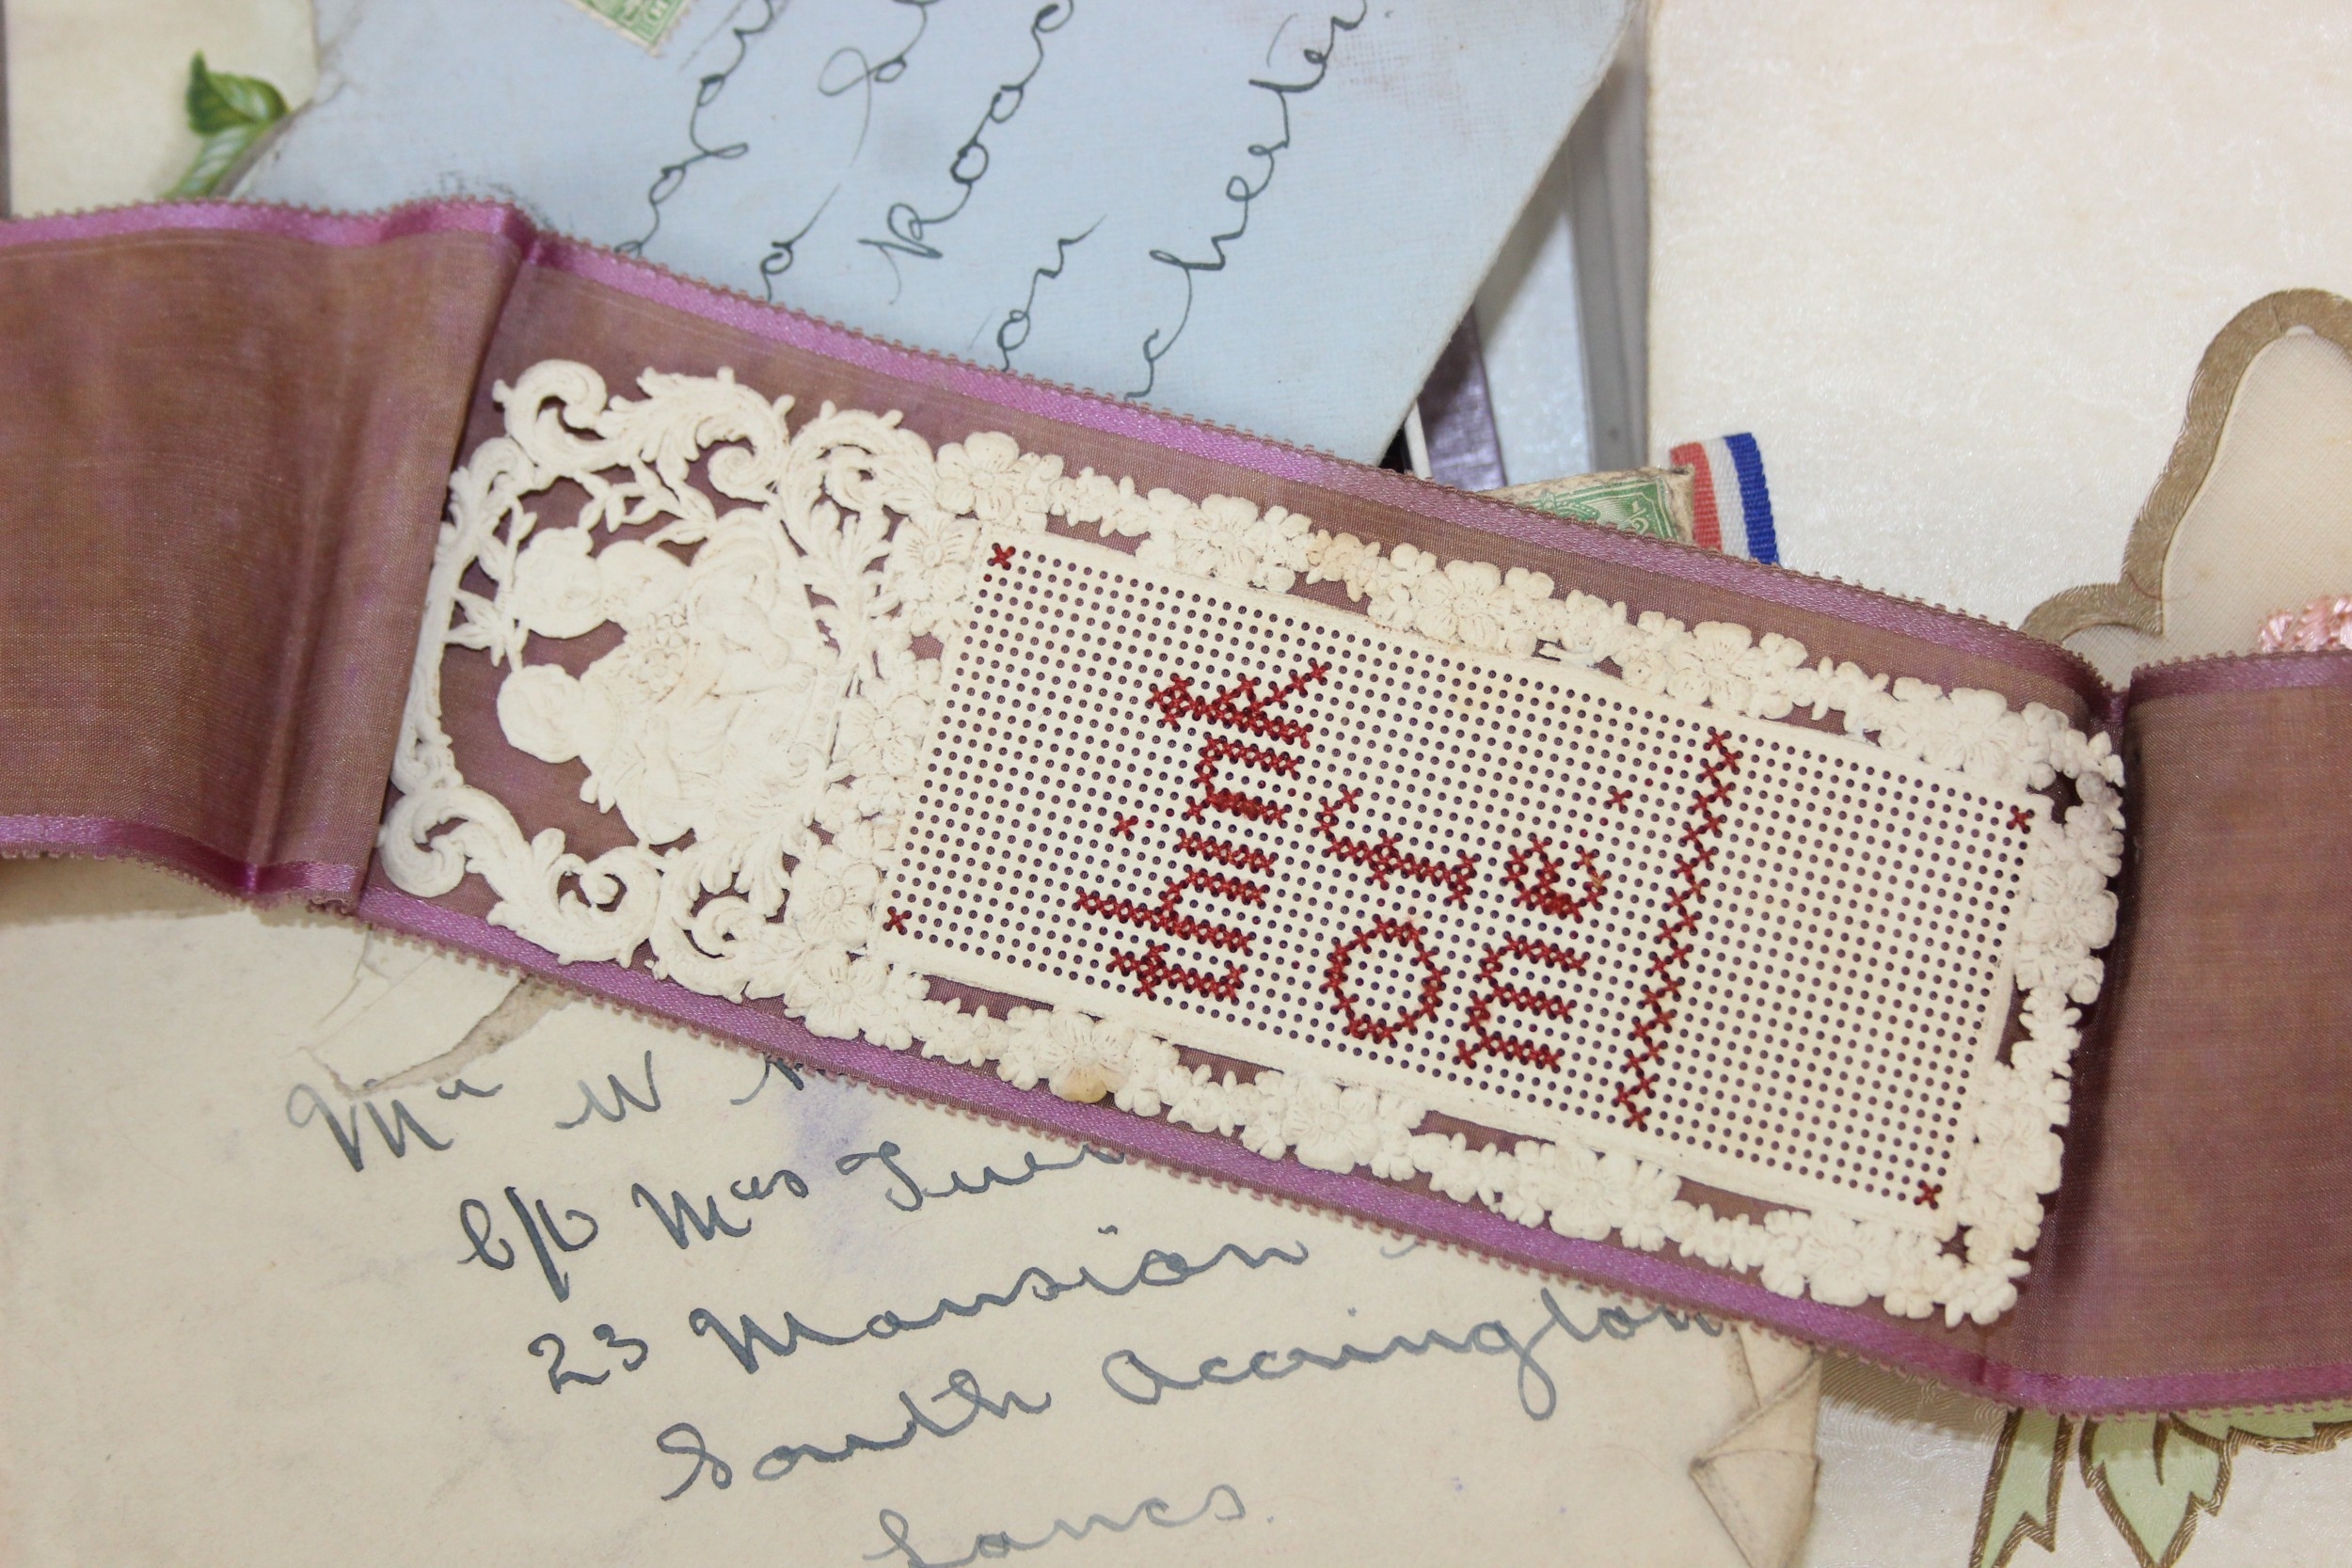 Road
think
of
me.
Mr W
C/o Mrs
23 Mansion
South Accrington
Lancs.